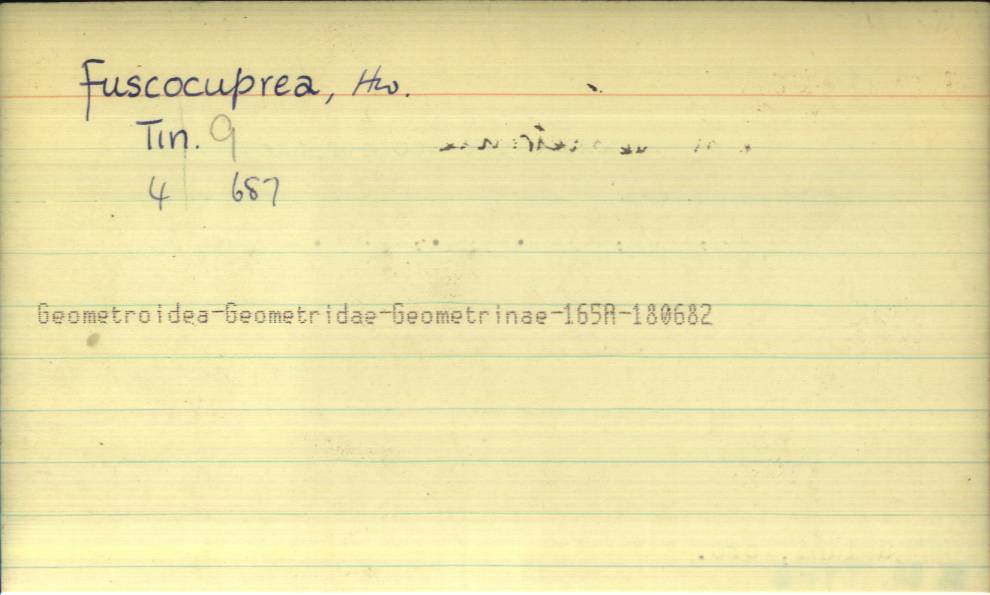 Fuscocuprea, Hw.
Tin. 9
4 687
Geometroidea-Geometridae-Geometrinae-165A-180682